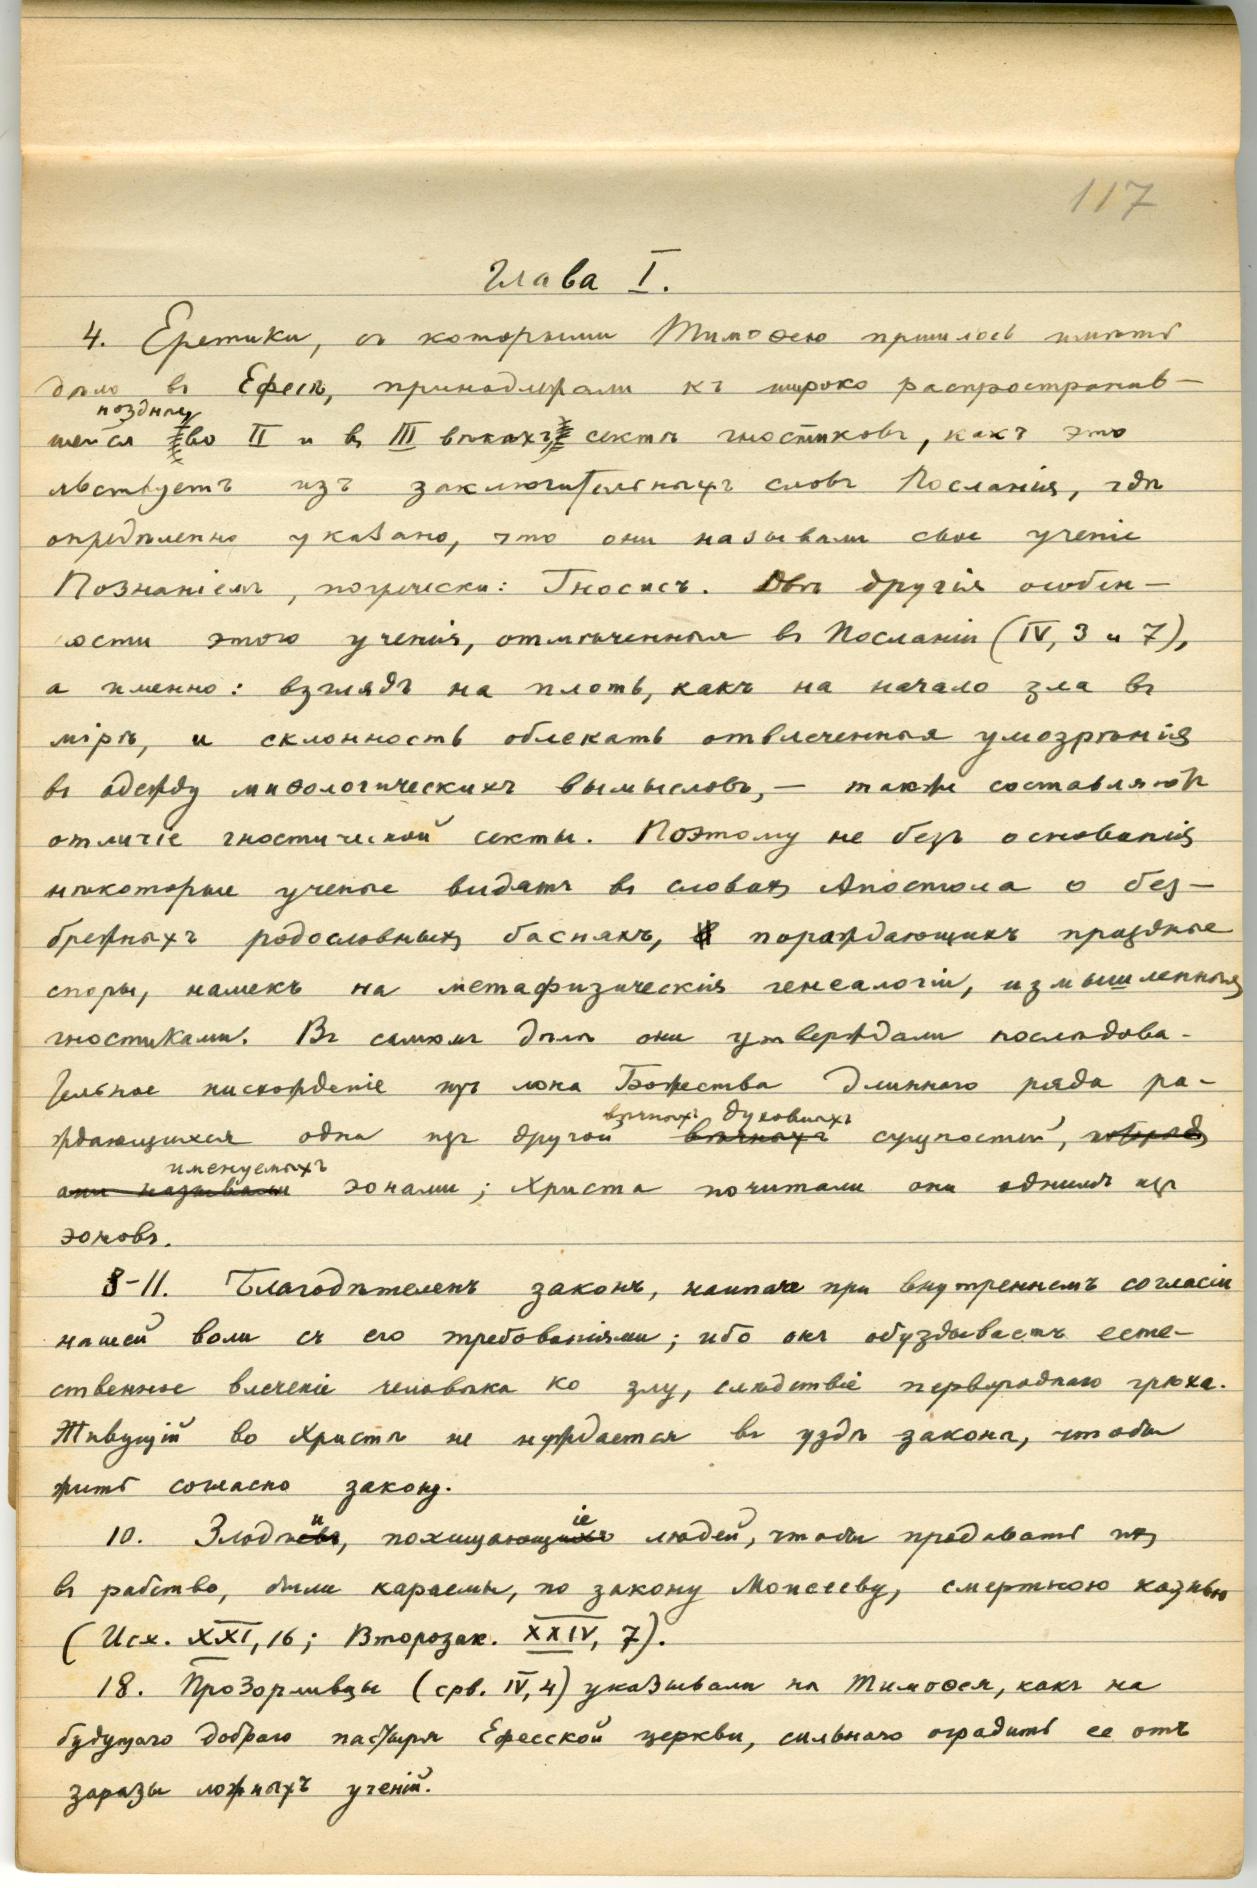 117
Глава I.
4. Еретики, съ которыми Тимоѳею пришлось имѣть
дѣло въ Ефесѣ, принадлежали къ широко распространив-
позднѣе
шейся во II и въ III вѣкахъ сектѣ гностиковъ, какъ это
явствуетъ изъ заключительныхъ словъ Посланія, гдѣ
опредѣленно указано, что они называли свое ученіе
Познаніемъ, погречески: Гносисъ. Двѣ другія особен-
ности этого ученія, отмѣченныя въ Посланіи (IV, 3 и 7),
а именно: взглядъ на плоть, какъ на начало зла въ
мірѣ, и склонность облекать отвлеченныя умозрѣнія
въ одежду миѳологическихъ вымысловъ, — также составляютъ
отличіе гностической секты. Поэтому не безъ основанія
нѣкоторые ученые видятъ въ словахъ Апостола о без-
брежныхъ родословныхъ басняхъ, пораждающихъ праздные
споры, намекъ на метафизическія генеалогіи, измышленныя
гностиками. Въ самомъ дѣлѣ они утверждали послѣдова-
тельное нисхожденіе изъ лона Божества длиннаго ряда ра-
вѣчныхъ духовныхъ
ждающихся одна изъ другой вѣчныхъ сущностей,
именуемыхъ
они называли эонами; Христа почитали они однимъ изъ
эоновъ.
8-11. Благодѣтеленъ законъ, наипаче при внутреннемъ согласіи
нашей воли съ его требованіями; ибо онъ обуздываетъ есте-
ственное влеченіе человѣка ко злу, слѣдствіе первороднаго грѣха.
Живущій во Христѣ не нуждается въ уздѣ закона, чтобы
жить согласно закону.
10. Злодѣи, похищающіе людей, чтобы продавать ихъ
въ рабство, были караемы, по закону Моисееву, смертною казнью
(Исх. XXI, 16; Второзак. XXIV, 7).
18. Прозорливцы (срв. IV, 4) указывали на Тимоѳея, какъ на
будущаго добраго пастыря Ефесской церкви, сильнаго оградить ее отъ
заразы ложныхъ ученій.